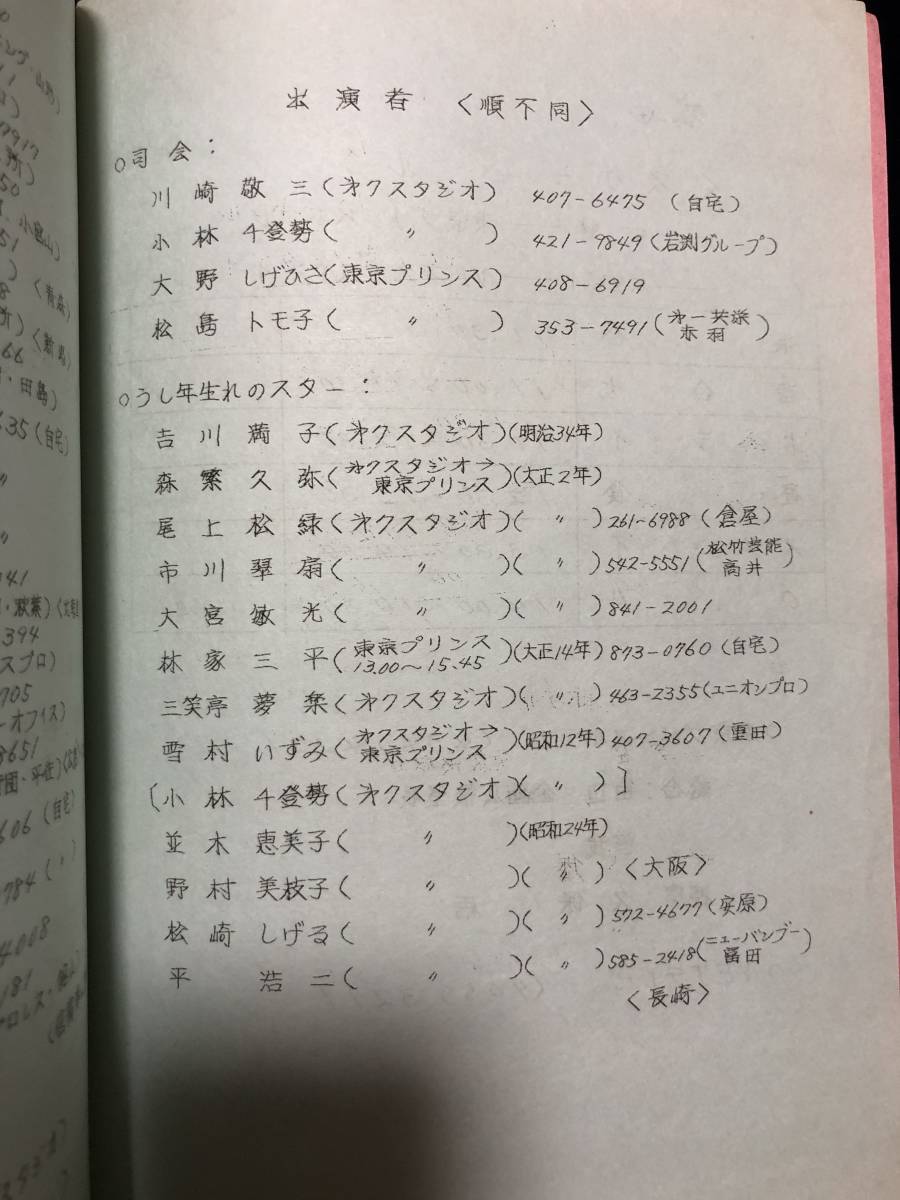 出演者 〈順不同〉
○司会：
川崎敬三(オクスタジオ) 407-6475 (自宅)
小林千登勢( 〃 ) 421-9849 (岩渕グループ)
大野しげひさ(東京プリンス) 408-6919
松島トモ子( 〃 ) 353-7491 (オ一共添 赤羽)
○うし年生れのスター：
吉川満子(オクスタジオ)(明治34年)
森繁久弥(オクスタジオ→東京プリンス)(大正2年)
尾上松緑(オクスタジオ)( 〃 ) 261-6988 (倉屋)
市川翠扇( 〃 )( 〃 ) 542-5551 (松竹芸能 高井)
大宮敏光( 〃 )( 〃 ) 841-2001
林家三平(東京プリンス 13.00〜15.45)(大正14年) 873-0760 (自宅)
三笑亭夢楽(オクスタジオ)( 〃 ) 463-2355 (ユニオンプロ)
雪村いずみ(オクスタジオ→東京プリンス)(昭和12年) 407-3607 (重田)
[小林千登勢(オクスタジオ)( 〃 )]
並木恵美子( 〃 )(昭和24年)
野村美枝子( 〃 )( 〃 ) 〈大阪〉
松崎しげる( 〃 )( 〃 ) 572-4677 (安原)
平浩二( 〃 )( 〃 ) 585-2418 (ニューバンブー 冨田)
〈長崎〉
小富山)
〈青森〉
〈新潟〉
・田島)
635 (自宅)
〃
〃
041
394
スプロ)
705
ーオフィス)
8651
606 (自宅)
784
4008
181